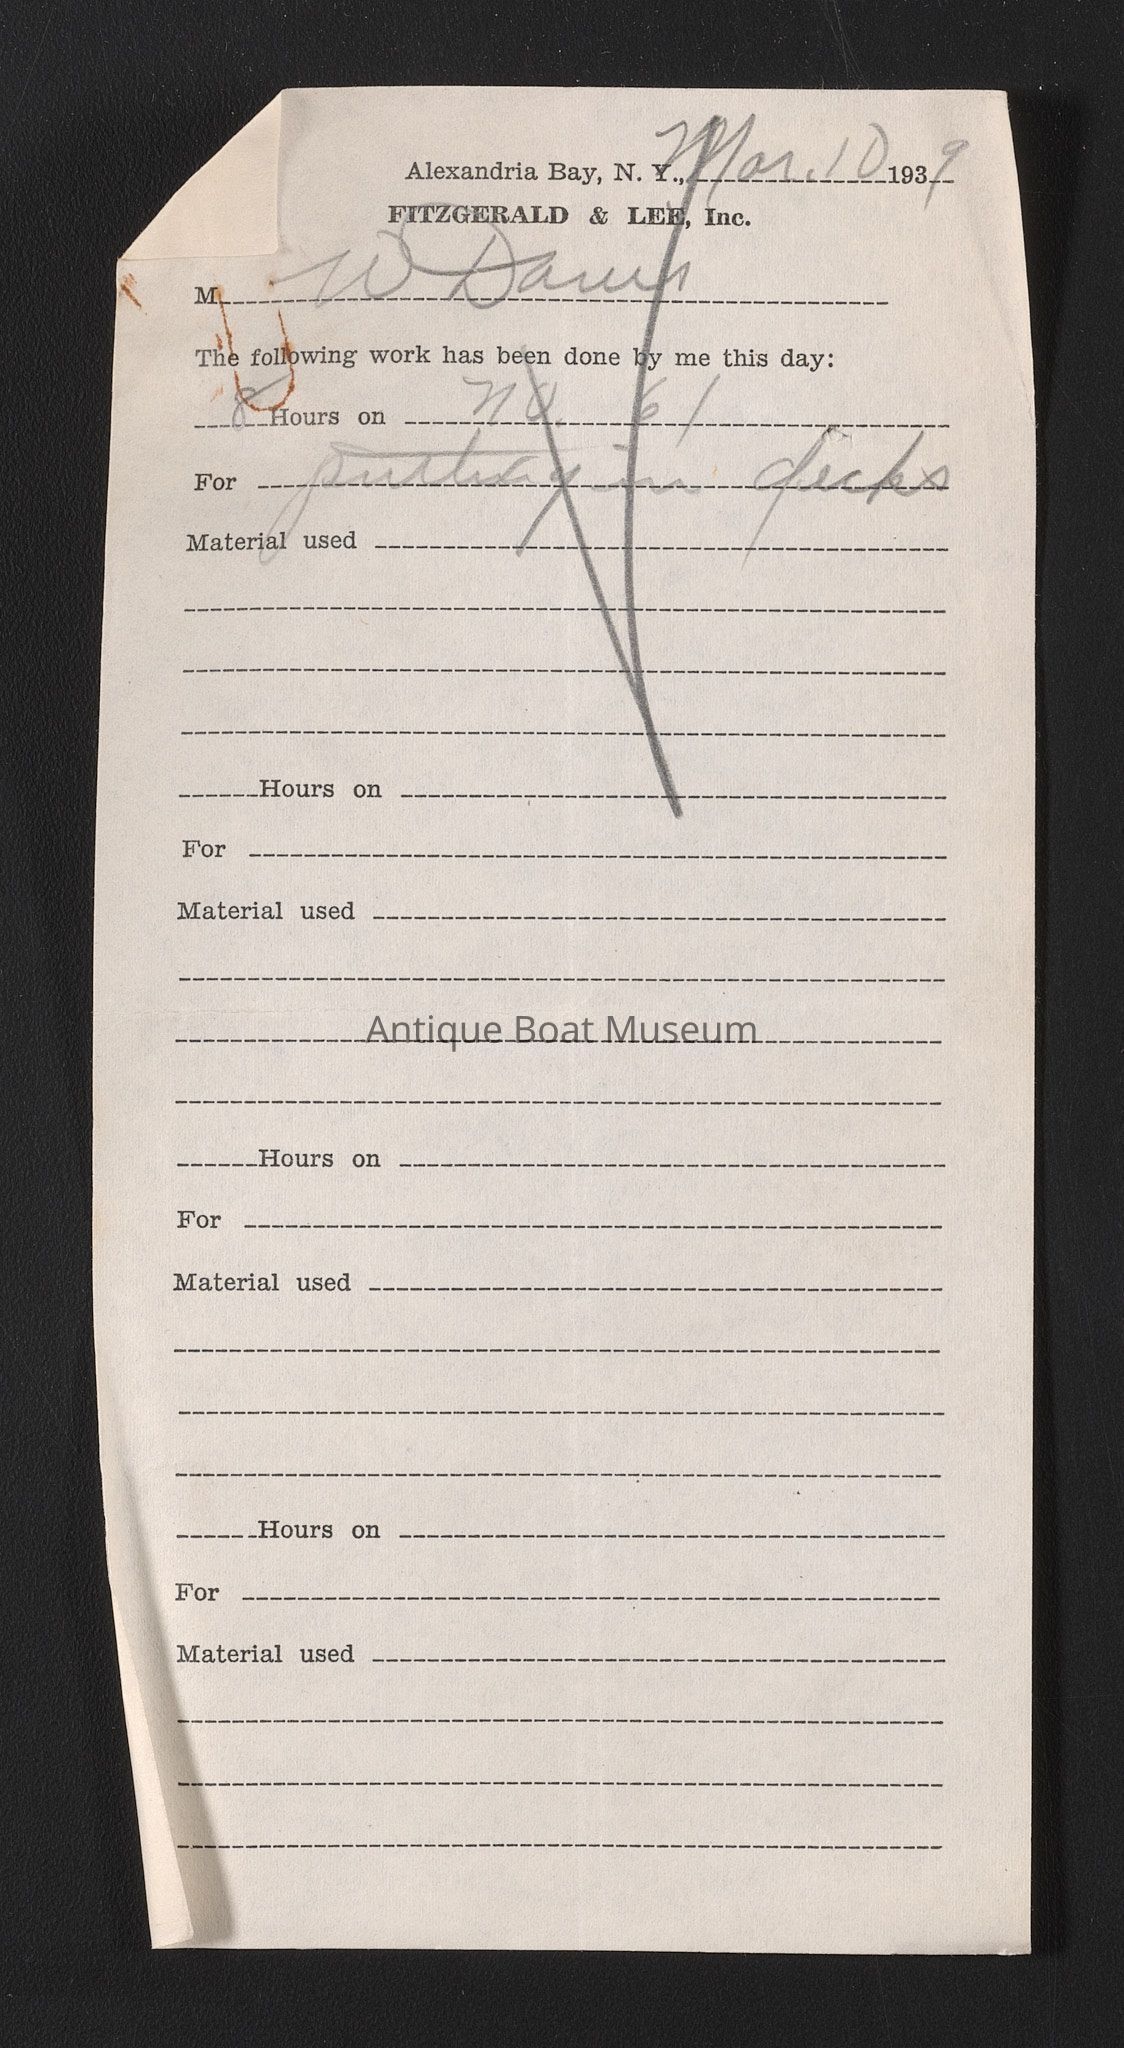 Alexandria Bay, N. Y., Mar. 10 1939
FITZGERALD & LEE, Inc.
M W Davis
The following work has been done by me this day:
8 Hours on No. 61
For putting in decks
Material used
Hours on
For
Material used
Antique Boat Museum
Hours on
For
Material used
Hours on
For
Material used